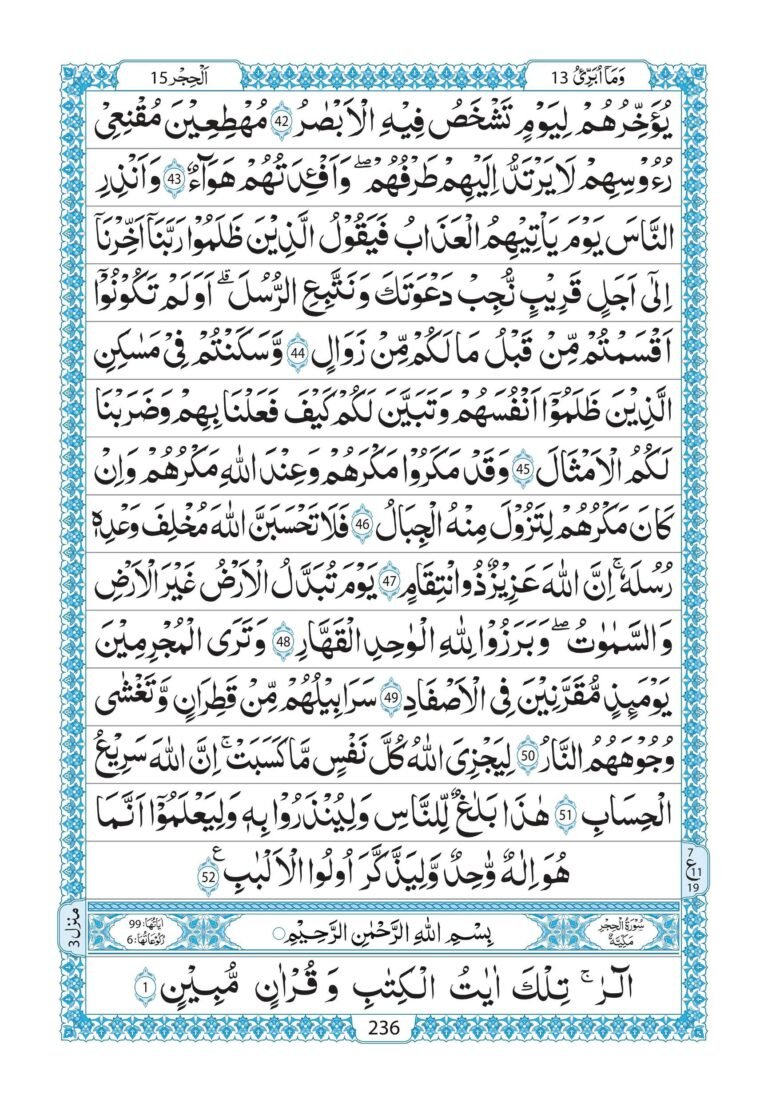 وَمَاۤ اُبَرِّئُ 13
اَلْحِجْر 15
يُؤَخِّرُهُمْ لِيَوْمٍ تَشْخَصُ فِيْهِ الْاَبْصَارُ 42 مُهْطِعِيْنَ مُقْنِعِيْ
رُءُوْسِهِمْ لَا يَرْتَدُّ اِلَيْهِمْ طَرْفُهُمْ ۖ وَاَفْـِٕدَتُهُمْ هَوَآءٌ 43 وَاَنْذِرِ
النَّاسَ يَوْمَ يَاْتِيْهِمُ الْعَذَابُ فَيَقُوْلُ الَّذِيْنَ ظَلَمُوْا رَبَّنَاۤ اَخِّرْنَاۤ
اِلٰٓى اَجَلٍ قَرِيْبٍ نُّجِبْ دَعْوَتَكَ وَنَتَّبِعِ الرُّسُلَ ؕ اَوَلَمْ تَكُوْنُوْۤا
اَقْسَمْتُمْ مِّنْ قَبْلُ مَا لَكُمْ مِّنْ زَوَالٍ 44 وَّسَكَنْتُمْ فِيْ مَسٰكِنِ
الَّذِيْنَ ظَلَمُوْۤا اَنْفُسَهُمْ وَتَبَيَّنَ لَكُمْ كَيْفَ فَعَلْنَا بِهِمْ وَضَرَبْنَا
لَكُمُ الْاَمْثَالَ 45 وَقَدْ مَكَرُوْا مَكْرَهُمْ وَعِنْدَ اللّٰهِ مَكْرُهُمْ وَاِنْ
كَانَ مَكْرُهُمْ لِتَزُوْلَ مِنْهُ الْجِبَالُ 46 فَلَا تَحْسَبَنَّ اللّٰهَ مُخْلِفَ وَعْدِهٖ
رُسُلَهٗ ۚ اِنَّ اللّٰهَ عَزِيْزٌ ذُوانْتِقَامٍ 47 يَوْمَ تُبَدَّلُ الْاَرْضُ غَيْرَ الْاَرْضِ
وَالسَّمٰوٰتُ ۖ وَبَرَزُوْا لِلّٰهِ الْوٰحِدِ الْقَهَّارِ 48 وَتَرَى الْمُجْرِمِيْنَ
يَوْمَىِٕذٍ مُّقَرَّنِيْنَ فِى الْاَصْفَادِ 49 سَرَابِيْلُهُمْ مِّنْ قَطِرَانٍ وَّتَغْشٰى
وُجُوْهَهُمُ النَّارُ 50 لِيَجْزِىَ اللّٰهُ كُلَّ نَفْسٍ مَّا كَسَبَتْ ۚ اِنَّ اللّٰهَ سَرِيْعُ
الْحِسَابِ 51 هٰذَا بَلٰغٌ لِّلنَّاسِ وَلِيُنْذَرُوْا بِهٖ وَلِيَعْلَمُوْۤا اَنَّمَا
هُوَ اِلٰهٌ وَّاحِدٌ وَّلِيَذَّكَّرَ اُولُوا الْاَلْبٰبِ ع 52
7
ع 11
19
منزل 3
سُوْرَةُ الْحِجْرِ
مَكِّيَّةٌ
بِسْمِ اللّٰهِ الرَّحْمٰنِ الرَّحِيْمِ
اٰيَاتُهَا: 99
رُكُوْعَاتُهَا: 6
الٓرٰ ۚ تِلْكَ اٰيٰتُ الْكِتٰبِ وَ قُرْاٰنٍ مُّبِيْنٍ 1
236